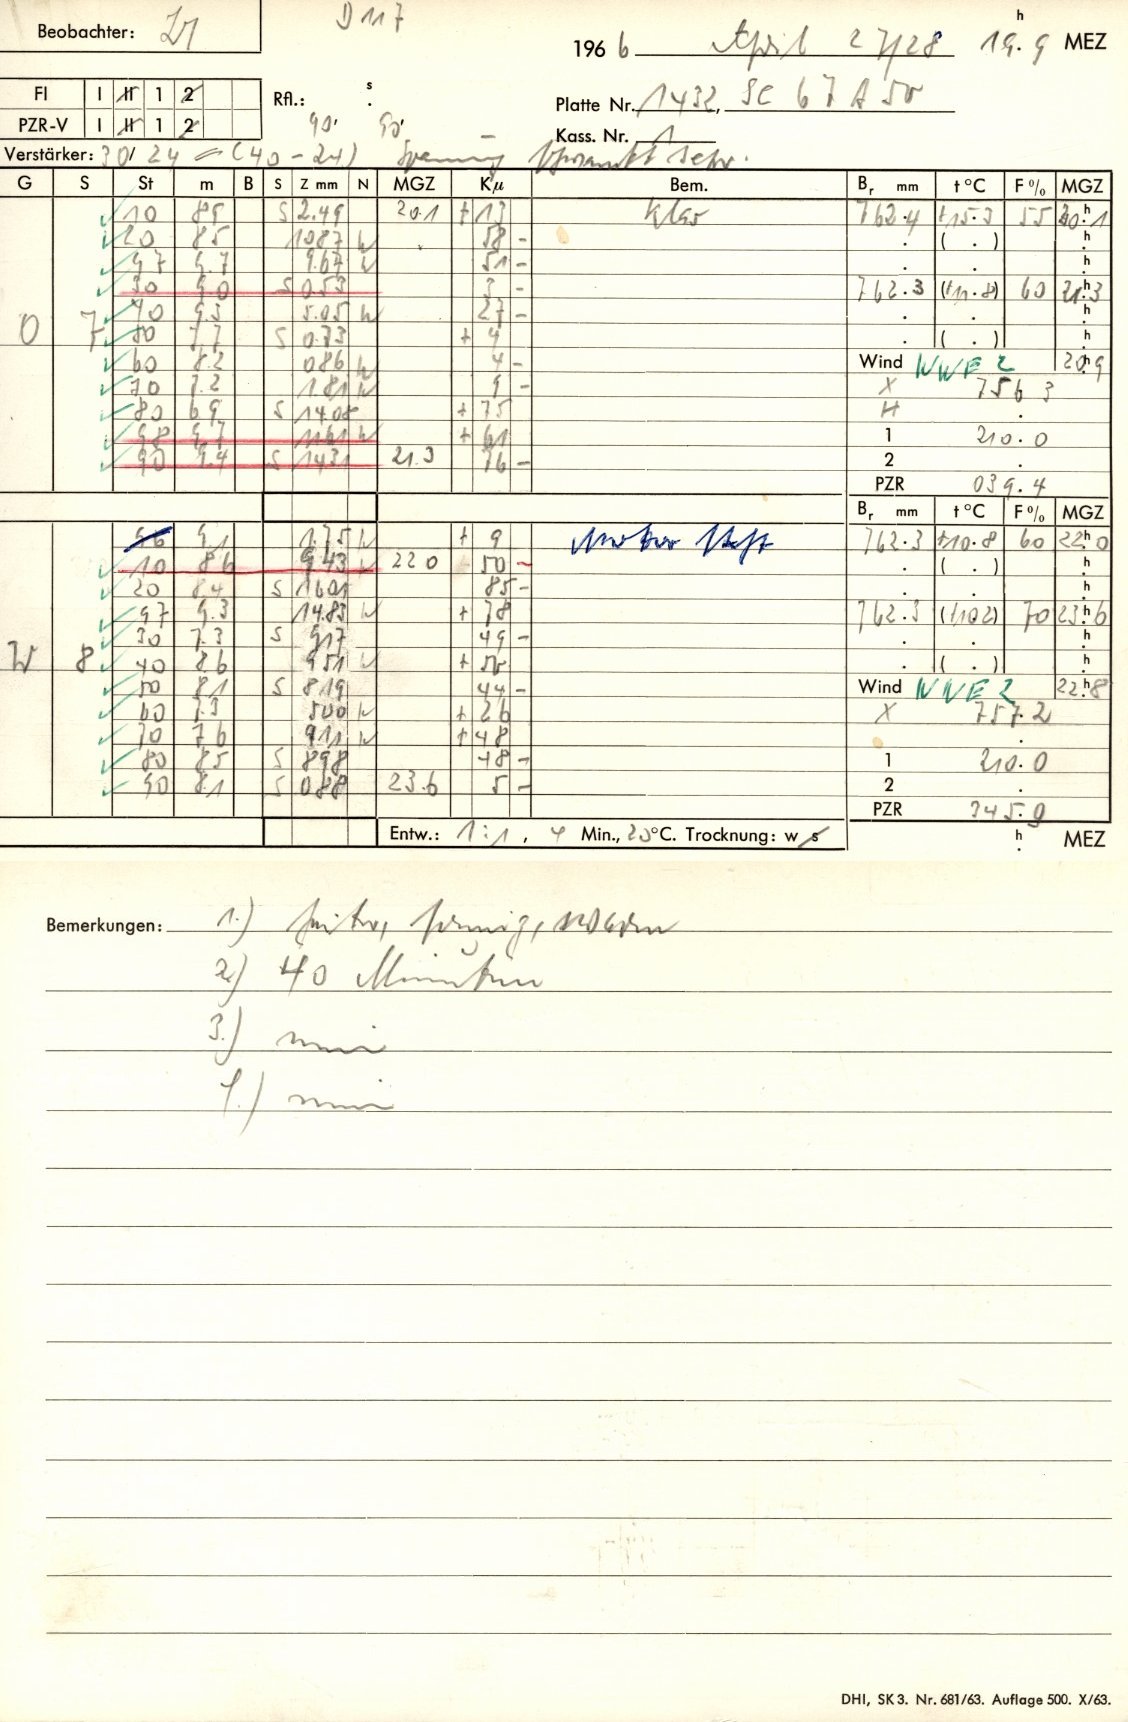 D 117
Beobachter:
h
196 6 April 27/28 19.9 MEZ
Fl I II 1 2
Rfl.: s
Platte Nr. 1432, SC 67 A 50
PZR-V I II 1 2
90' 90'
Kass. Nr. 1
Verstärker: 30/24 (40-24) Spannung schwankt sehr.
G S St m B S Z mm N MGZ Kμ Bem. Br mm t °C F % MGZ
10 8.9 S 2.49 20.1 +13 klar 762.4 +15.3 55 20h.1
20 8.5 10.87 N 58 - . ( . ) h
97 9.7 9.67 N 51 - . h
30 9.0 S 0.53 3 - 762.3 (+11.8) 60 21h.3
40 9.5 5.05 N 27 - . h
O 7 50 7.7 S 0.73 + 4 . ( . ) h
60 8.2 086 N 4 - Wind NNE 2 20h9
70 7.2 1.81 N 9 - X 756 3
80 6.9 S 14.08 +75 H .
98 9.7 11.61 N +61 1 210.0
90 9.4 S 1431 21.3 76 - 2 .
PZR 039.4
Br mm t °C F % MGZ
96 9.1 1.75 N + 9 Motor 762.3 +10.8 60 22h0
10 8.6 9.43 N 22 0 50 - . ( . ) h
20 8.4 S 1601 85 - . h
97 9.3 14.83 N +78 762.3 (+10.2) 70 23h6
30 7.3 S 917 49 - . h
W 8 40 8.6 951 N +50 . ( . ) h
50 8.1 S 819 44 - Wind NNE 2 22h8
60 7.3 500 N +26 X 757.2
70 7.6 911 N +48 .
80 8.5 S 898 48 - 1 210.0
90 8.1 S 088 23.6 5 - 2 .
PZR 345.9
Entw.: 1:1, 4 Min., 20°C. Trocknung: w s h MEZ
Bemerkungen: 1.) heiter, sonnig, warm
2.) 40 Minuten
3.) nein
4.) nein
DHI, SK 3. Nr. 681/63. Auflage 500. X/63.